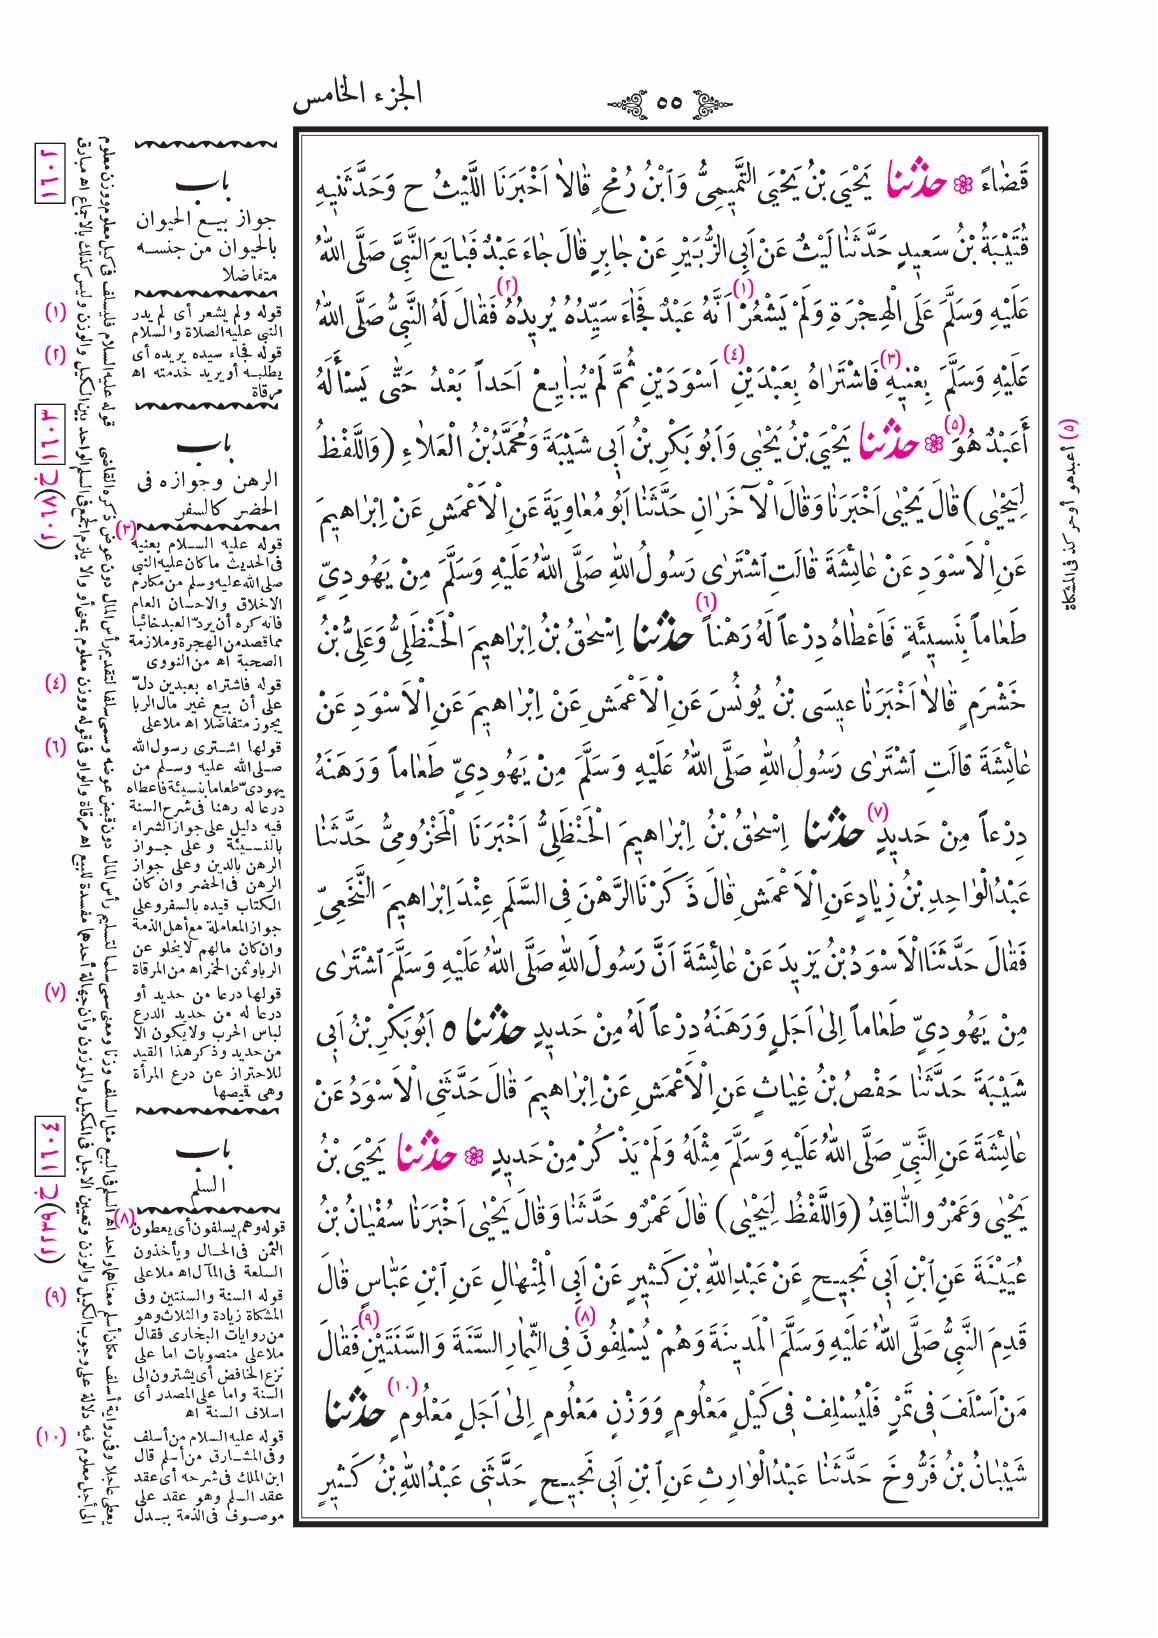 الجزء الخامس
٥٥
قَضَاءً ❁ حدثنا يَحْيَى بْنُ يَحْيَى التَّمِيمِىُّ وَابْنُ رُمْحٍ قَالاَ اَخْبَرَنَا اللَّيْثُ ح وَحَدَّثَنِيهِ
قُتَيْبَةُ بْنُ سَعِيدٍ حَدَّثَنَا لَيْثٌ عَنْ اَبِى الزُّبَيْرِ عَنْ جَابِرٍ قَالَ جَاءَ عَبْدٌ فَبَايَعَ النَّبِىَّ صَلَّى اللهُ
عَلَيْهِ وَسَلَّمَ عَلَى الْهِجْرَةِ وَلَمْ يَشْعُرْ (١) اَنَّهُ عَبْدٌ فَجَاءَ سَيِّدُهُ يُرِيدُهُ (٢) فَقَالَ لَهُ النَّبِىُّ صَلَّى اللهُ
عَلَيْهِ وَسَلَّمَ بِعْنِيهِ (٣) فَاشْتَرَاهُ بِعَبْدَيْنِ (٤) اَسْوَدَيْنِ ثُمَّ لَمْ يُبَايِعْ اَحَداً بَعْدُ حَتّٰى يَسْأَلَهُ
أَعَبْدٌ هُوَ (٥) ❁ حدثنا يَحْيَى بْنُ يَحْيٰى وَاَبُو بَكْرِ بْنُ اَبِى شَيْبَةَ وَمُحَمَّدُ بْنُ الْعَلاٰءِ (وَاللَّفْظُ
لِيَحْيٰى) قَالَ يَحْيٰى اَخْبَرَنَا وَقَالَ الْآخَرَانِ حَدَّثَنَا اَبُو مُعَاوِيَةَ عَنِ الْاَعْمَشِ عَنْ اِبْرٰاهِيمَ
عَنِ الْاَسْوَدِ عَنْ عَائِشَةَ قَالَتِ اشْتَرٰى رَسُولُ اللهِ صَلَّى اللهُ عَلَيْهِ وَسَلَّمَ مِنْ يَهُودِىٍّ
طَعَاماً بِنَسِيئَةٍ فَاَعْطَاهُ دِرْعاً لَهُ رَهْناً (٦) حدثنا اِسْحٰقُ بْنُ اِبْرٰاهِيمَ الْحَنْظَلِىُّ وَعَلِىُّ بْنُ
خَشْرَمٍ قَالاَ اَخْبَرَنَا عِيسَى بْنُ يُونُسَ عَنِ الْاَعْمَشِ عَنْ اِبْرٰاهِيمَ عَنِ الْاَسْوَدِ عَنْ
عَائِشَةَ قَالَتِ اشْتَرٰى رَسُولُ اللهِ صَلَّى اللهُ عَلَيْهِ وَسَلَّمَ مِنْ يَهُودِىٍّ طَعَاماً وَرَهَنَهُ
دِرْعاً مِنْ حَدِيدٍ (٧) حدثنا اِسْحٰقُ بْنُ اِبْرٰاهِيمَ الْحَنْظَلِىُّ اَخْبَرَنَا الْمَخْزُومِىُّ حَدَّثَنَا
عَبْدُ الْوَاحِدِ بْنُ زِيَادٍ عَنِ الْاَعْمَشِ قَالَ ذَكَرْنَا الرَّهْنَ فِى السَّلَمِ عِنْدَ اِبْرٰاهِيمَ النَّخَعِىِّ
فَقَالَ حَدَّثَنَا الْاَسْوَدُ بْنُ يَزِيدَ عَنْ عَائِشَةَ اَنَّ رَسُولَ اللهِ صَلَّى اللهُ عَلَيْهِ وَسَلَّمَ اشْتَرٰى
مِنْ يَهُودِىٍّ طَعَاماً اِلىٰ اَجَلٍ وَرَهَنَهُ دِرْعاً لَهُ مِنْ حَدِيدٍ حدثنا ٥ اَبُو بَكْرِ بْنُ اَبِى
شَيْبَةَ حَدَّثَنَا حَفْصُ بْنُ غِيَاثٍ عَنِ الْاَعْمَشِ عَنْ اِبْرٰاهِيمَ قَالَ حَدَّثَنِى الْاَسْوَدُ عَنْ
عَائِشَةَ عَنِ النَّبِىِّ صَلَّى اللهُ عَلَيْهِ وَسَلَّمَ مِثْلَهُ وَلَمْ يَذْكُرْ مِنْ حَدِيدٍ ❁ حدثنا يَحْيَى بْنُ
يَحْيٰى وَعَمْرٌو النَّاقِدُ (وَاللَّفْظُ لِيَحْيٰى) قَالَ عَمْرٌو حَدَّثَنَا وَقَالَ يَحْيٰى اَخْبَرَنَا سُفْيَانُ بْنُ
عُيَيْنَةَ عَنِ ابْنِ اَبِى نَجِيحٍ عَنْ عَبْدِ اللهِ بْنِ كَثِيرٍ عَنْ اَبِى الْمِنْهَالِ عَنِ ابْنِ عَبَّاسٍ قَالَ
قَدِمَ النَّبِىُّ صَلَّى اللهُ عَلَيْهِ وَسَلَّمَ الْمَدِينَةَ وَهُمْ يُسْلِفُونَ (٨) فِى الثِّمَارِ السَّنَةَ وَالسَّنَتَيْنِ (٩) فَقَالَ
مَنْ اَسْلَفَ فِى تَمْرٍ فَلْيُسْلِفْ فِى كَيْلٍ مَعْلُومٍ وَوَزْنٍ مَعْلُومٍ اِلىٰ اَجَلٍ مَعْلُومٍ (١٠) حدثنا
شَيْبَانُ بْنُ فَرُّوخَ حَدَّثَنَا عَبْدُ الْوَارِثِ عَنِ ابْنِ اَبِى نَجِيحٍ حَدَّثَنِى عَبْدُ اللهِ بْنُ كَثِيرٍ
(٥) أعبد هو أو حر كذ فى المشكاة
باب
جواز بيع الحيوان
بالحيوان من جنسه
متفاضلا
١٦٠٢
(١) قوله ولم يشعر أى لم يدر
النبى عليه الصلاة والسلام
(٢) قوله فجاء سيده يريده أى
يطلبه أو يريد خدمته اه
مرقاة
باب
الرهن وجوازه فى
الحضر كالسفر
١٦٠٣
(٣) قوله عليه السلام بعنيه
فى الحديث ما كان عليه النبى
صلى الله عليه وسلم من مكارم
الاخلاق والاحسان العام
فانه كره أن يردّ العبد خائبا
مما قصد من الهجرة وملازمة
الصحبة اه من النووى
(٤) قوله فاشتراه بعبدين دلّ
على أن بيع غير مال الربا
يجوز متفاضلا اه ملا على
(٦) قولها اشترى رسول الله
صلى الله عليه وسلم من
يهودىّ طعاما بنسيئة فاعطاه
درعا له رهنا فى شرح السنة
فيه دليل على جواز الشراء
بالنسيئة وعلى جواز
الرهن بالدين وعلى جواز
الرهن فى الحضر وان كان
الكتاب قيده بالسفر وعلى
جواز المعاملة مع أهل الذمة
وان كان مالهم لا يخلو عن
الربا وثمن الخمر اه من المرقاة
(٧) قولها درعا من حديد أو
درعا له من حديد الدرع
لباس الحرب ولا يكون الا
من حديد وذكر هذا القيد
للاحتراز عن درع المرأة
وهى قميصها
باب
السلم
١٦٠٤
(٨) قوله وهم يسلفون أى يعطون
الثمن فى الحال ويأخذون
السلعة فى المآل اه ملا على
(٩) قوله السنة والسنتين وفى
المشكاة زيادة والثلاث وهو
من روايات البخارى فقال
ملا على منصوبات اما على
نزع الخافض أى يشترون الى
السنة واما على المصدر أى
اسلاف السنة اه
(١٠) قوله عليه السلام من أسلف
وفى المشارق من أسلم قال
ابن الملك فى شرحه أى عقد
عقد السلم وهو عقد على
موصوف فى الذمة ببدل